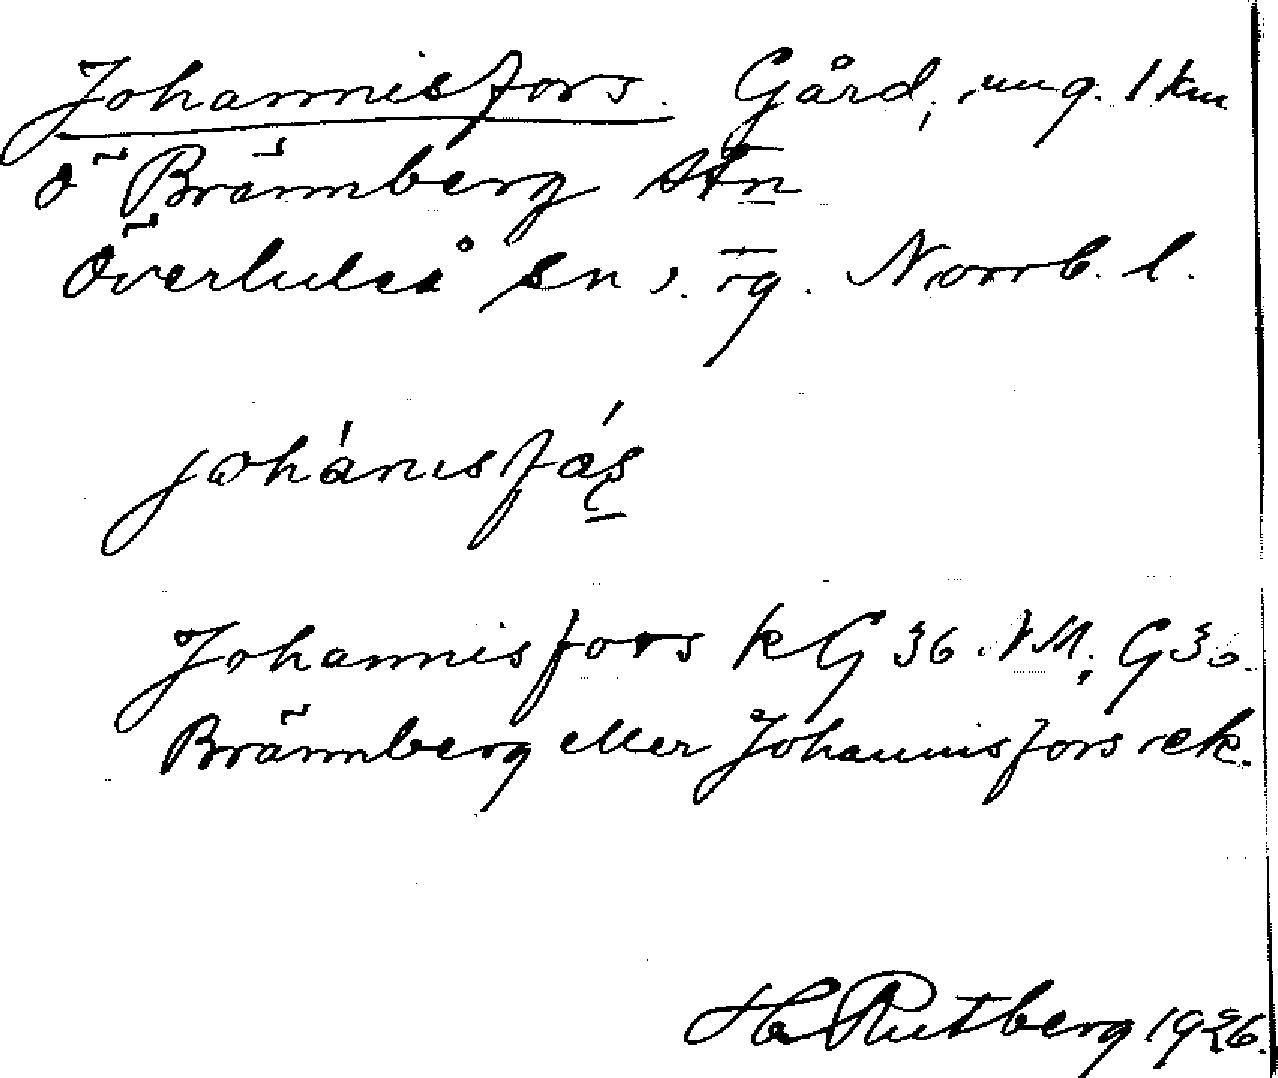 Johannisfors. Gård, ung. 1 km
ö Brännberg stn
Överluleå sn, rg. Norrb. l.
johánisfás
Johannisfors kG 36. VM, G36.
Brännberg eller Johannisfors ek.
H Rutberg 1926.